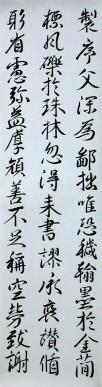 製序父深為鄙拙唯恐穢翰墨於金簡
標風礫於珠林忽得來書謬承褒讚循
躬省慮弥益厚顔善不足稱空勞致謝